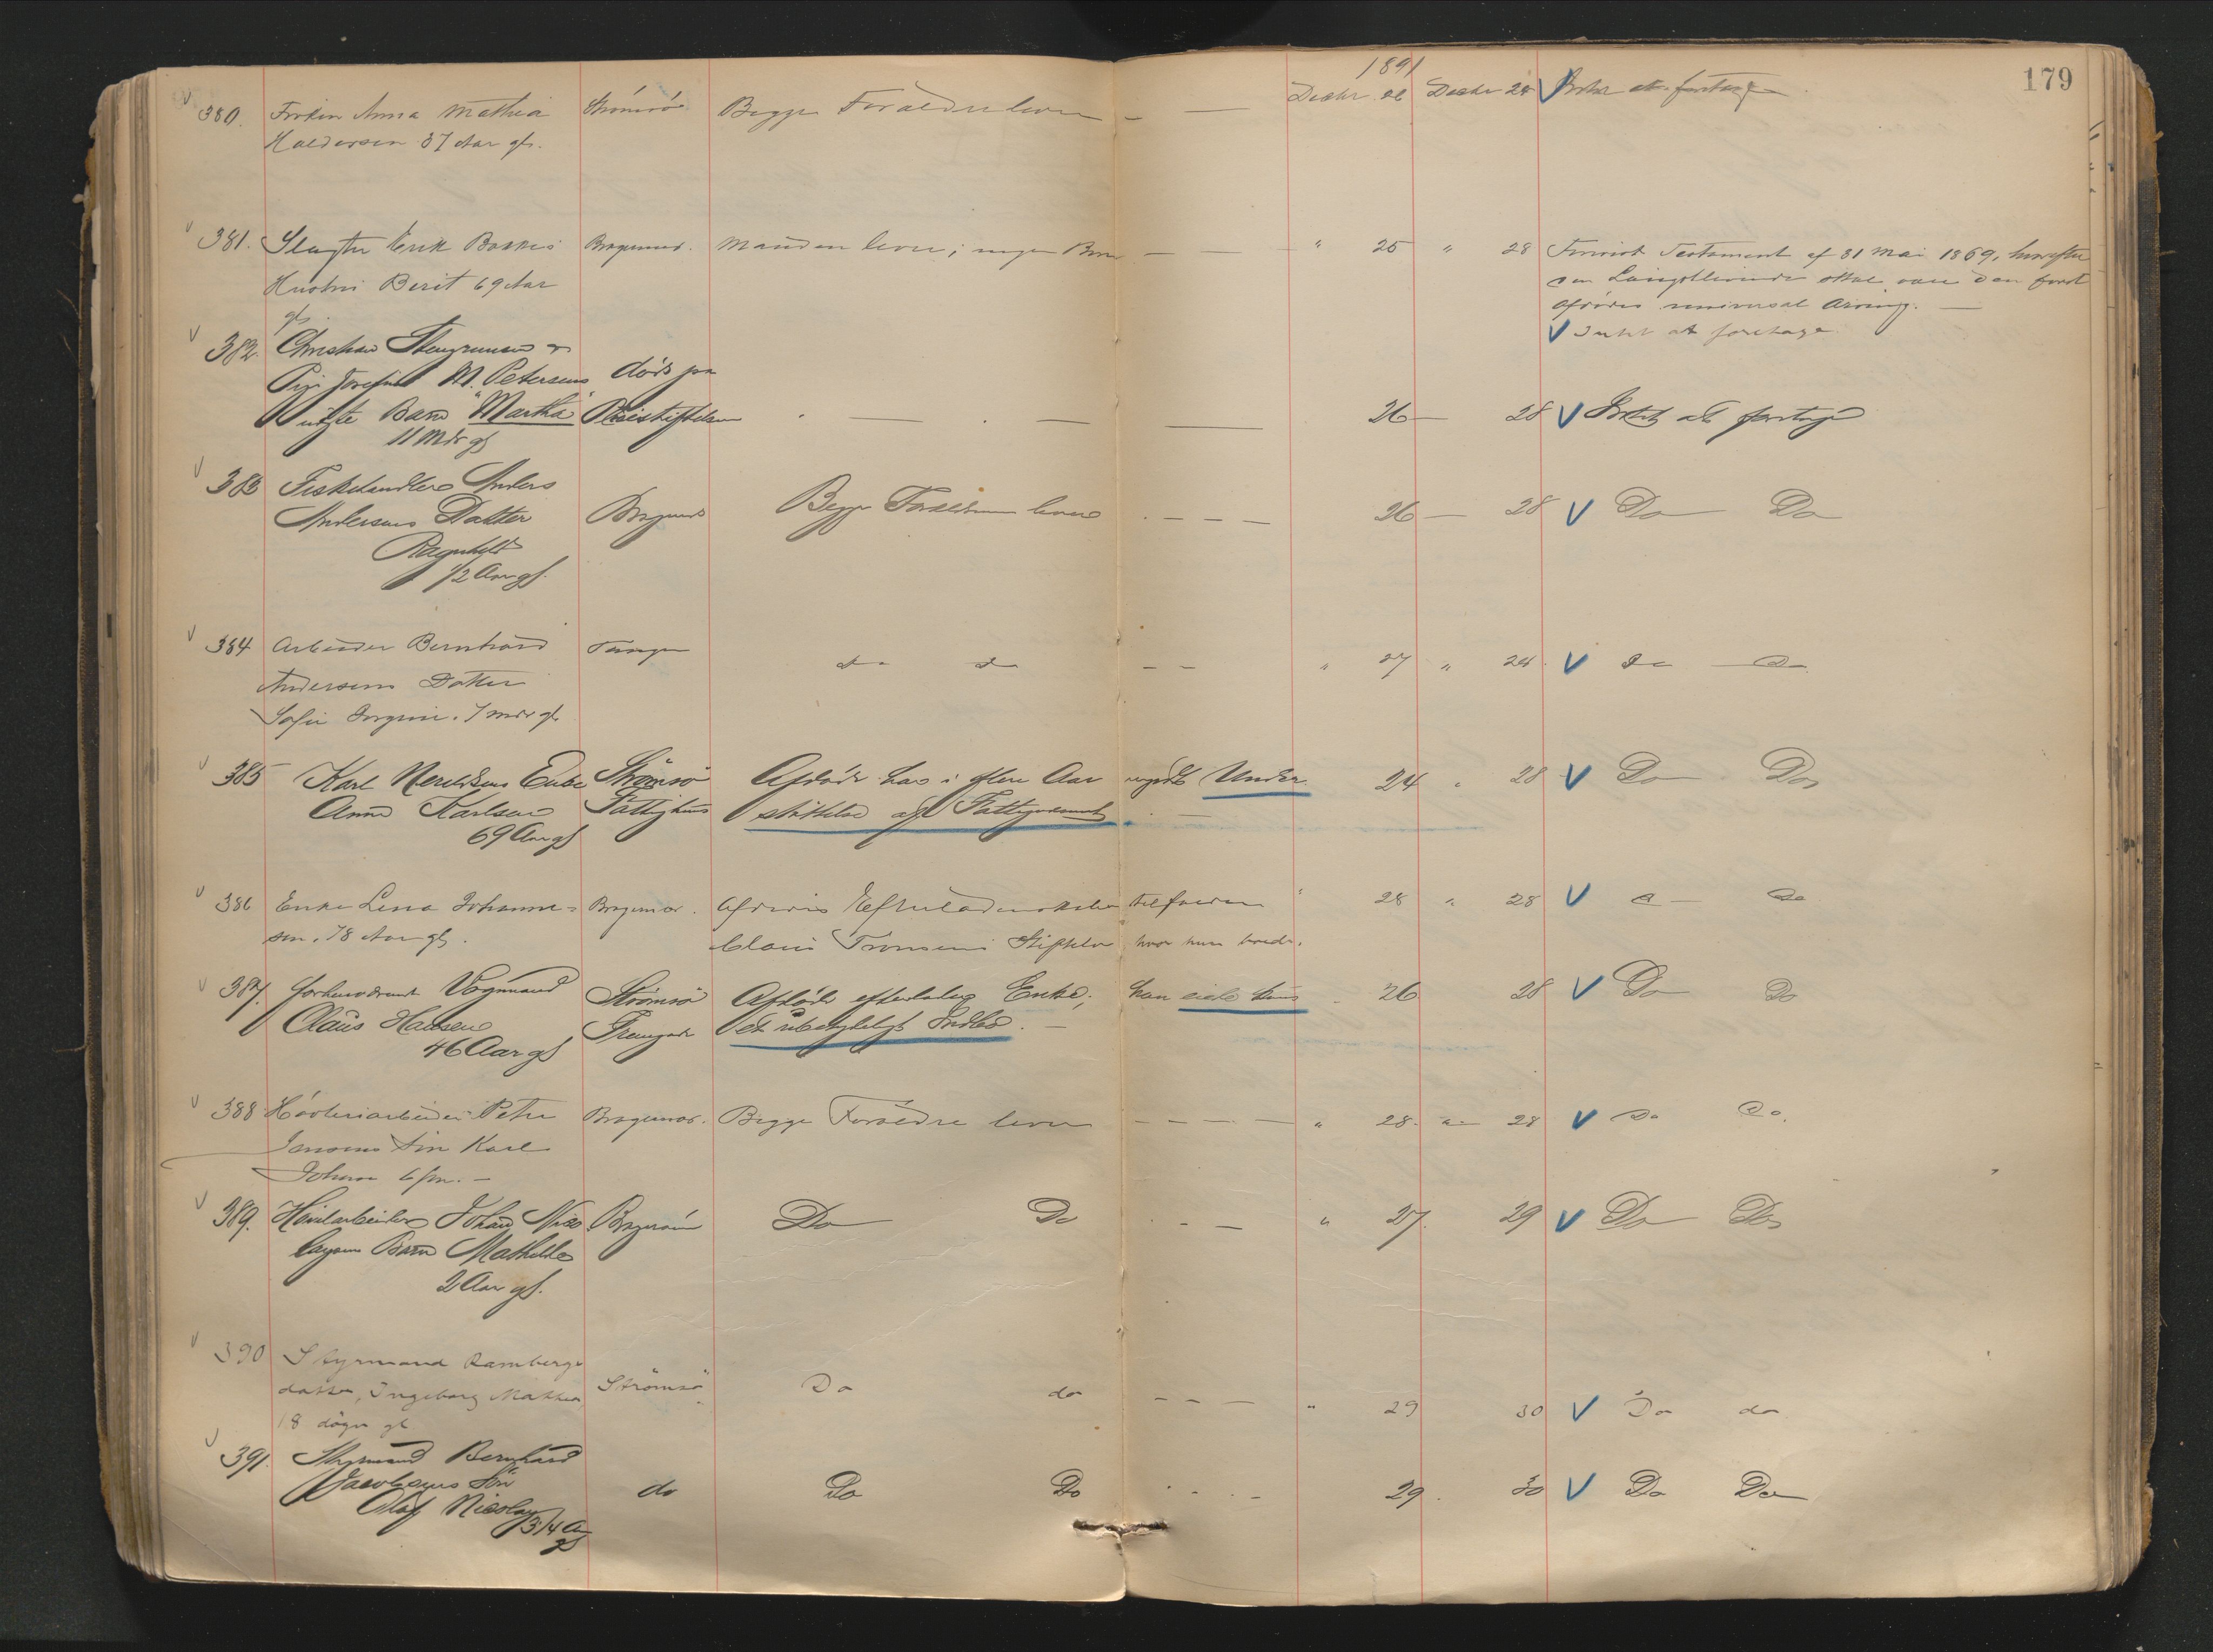 179
1891
380. Frøken Anna Mathea Strömsö Begge Forældre lever — Decbr 26 Decbr 28 V Intet at foretage
Halvorsen 37 Aar gl.
381. Slagter Erik Bakkes Bragernes. Manden lever; ingen Børn — " 25 " 28 Forevist Testament af 31 Mai 1869, hvorefter
Hustru Berit 69 Aar den Længstlevende skal være den først
gl. afdødes universal Arving. —
V Intet at foretage
382. Christian &
Pige Josefine M. Petersens døde paa
uægte Barn "Martha" 26 — 28 V Intet at foretage
11 Mdr gl
383 Fiskehandler Anders
Andersens Datter Bragernes Begge Forældrene lever — 26 — 28 V Do Do
Ragnhild
1/2 Aar gl.
384 Arbeider Bernhard Tangen do do — " 27 " 28 V do do
Andersens Datter
Sofie 7 mdr gl.
385 Karl Enke Strömsö Afdøde har i flere Aar nydt Under- 24 " 28 V Do Do
Anne Karlsen Fattighus støttelse af Fattigvæsenet
69 Aar gl
386 Enke Lena Johanne- Bragernes. Afdødes Efterladenskaber tilfalder " 28 " 28 V do do
sen. 78 Aar gl. Claus Tronsens Stiftelse hvor hun boede.
387. forhenværende Vognmand Strömsö Afdøde efterlader Enke; han eiede kun 26 28 V Do Do
Claus Hansen et ubetydeligt Indbo. —
46 Aar gl
388 Høvleriarbeider Petter Bragernes. Begge Forældre lever — " 28. " 28 V Do Do.
Jensens Søn Karl
Johan
389. Høvlarbeider Johan Nico- Bragernes Do Do — " 27. 29 V Do Do
laysens Barn Mathilde
2 Aar gl.
390 Styrmand Rambergs Strömsö Do do — " 29 30 V Do do
datter, Ingeborg Mathea
18 døgn gl
391. Styrmand Bernhard
Jacobsens Søn do Do Do — 29 30 V Do Do
Olaf Nicolay 3/4 Aar
gl